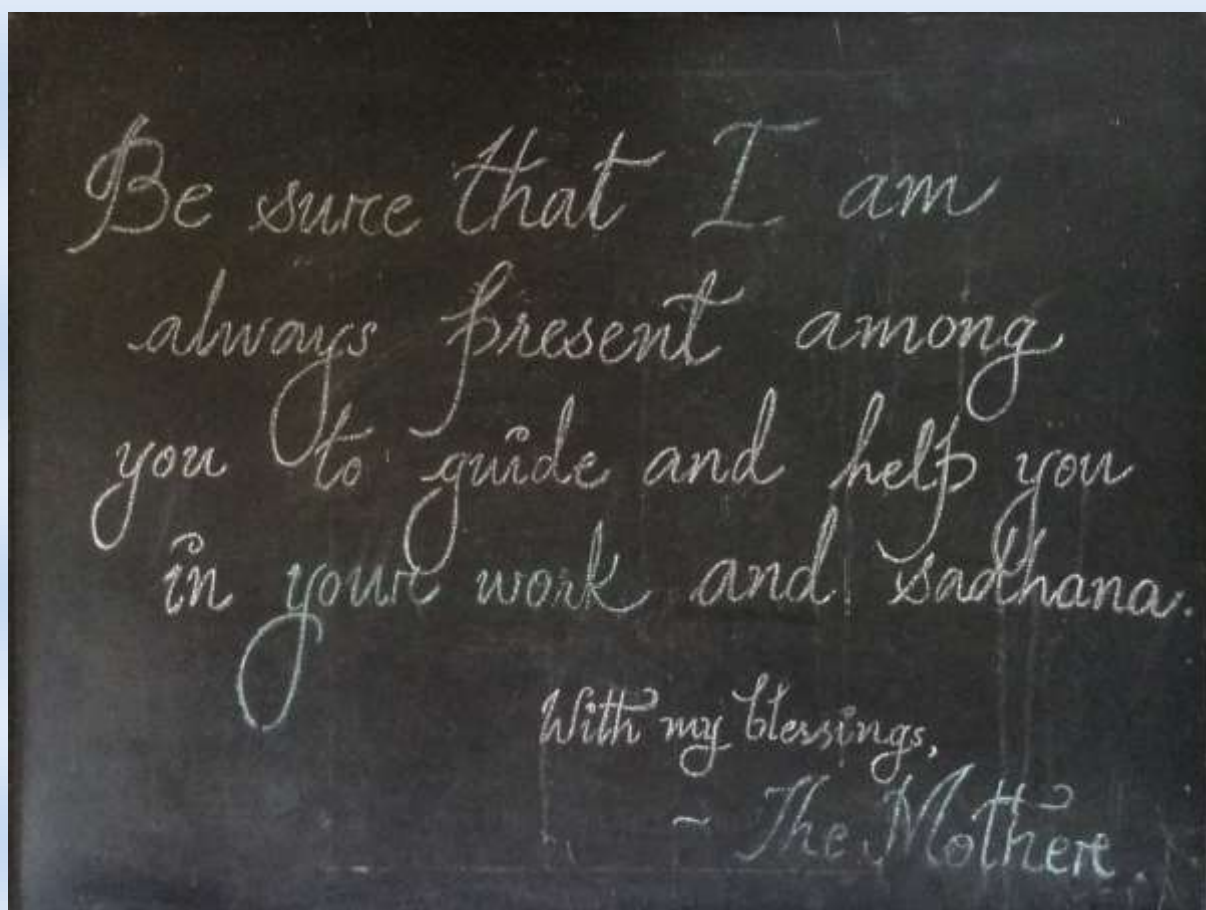 Be sure that I am
always present among
you to guide and help you
in your work and sadhana.
With my blessings,
~ The Mother.